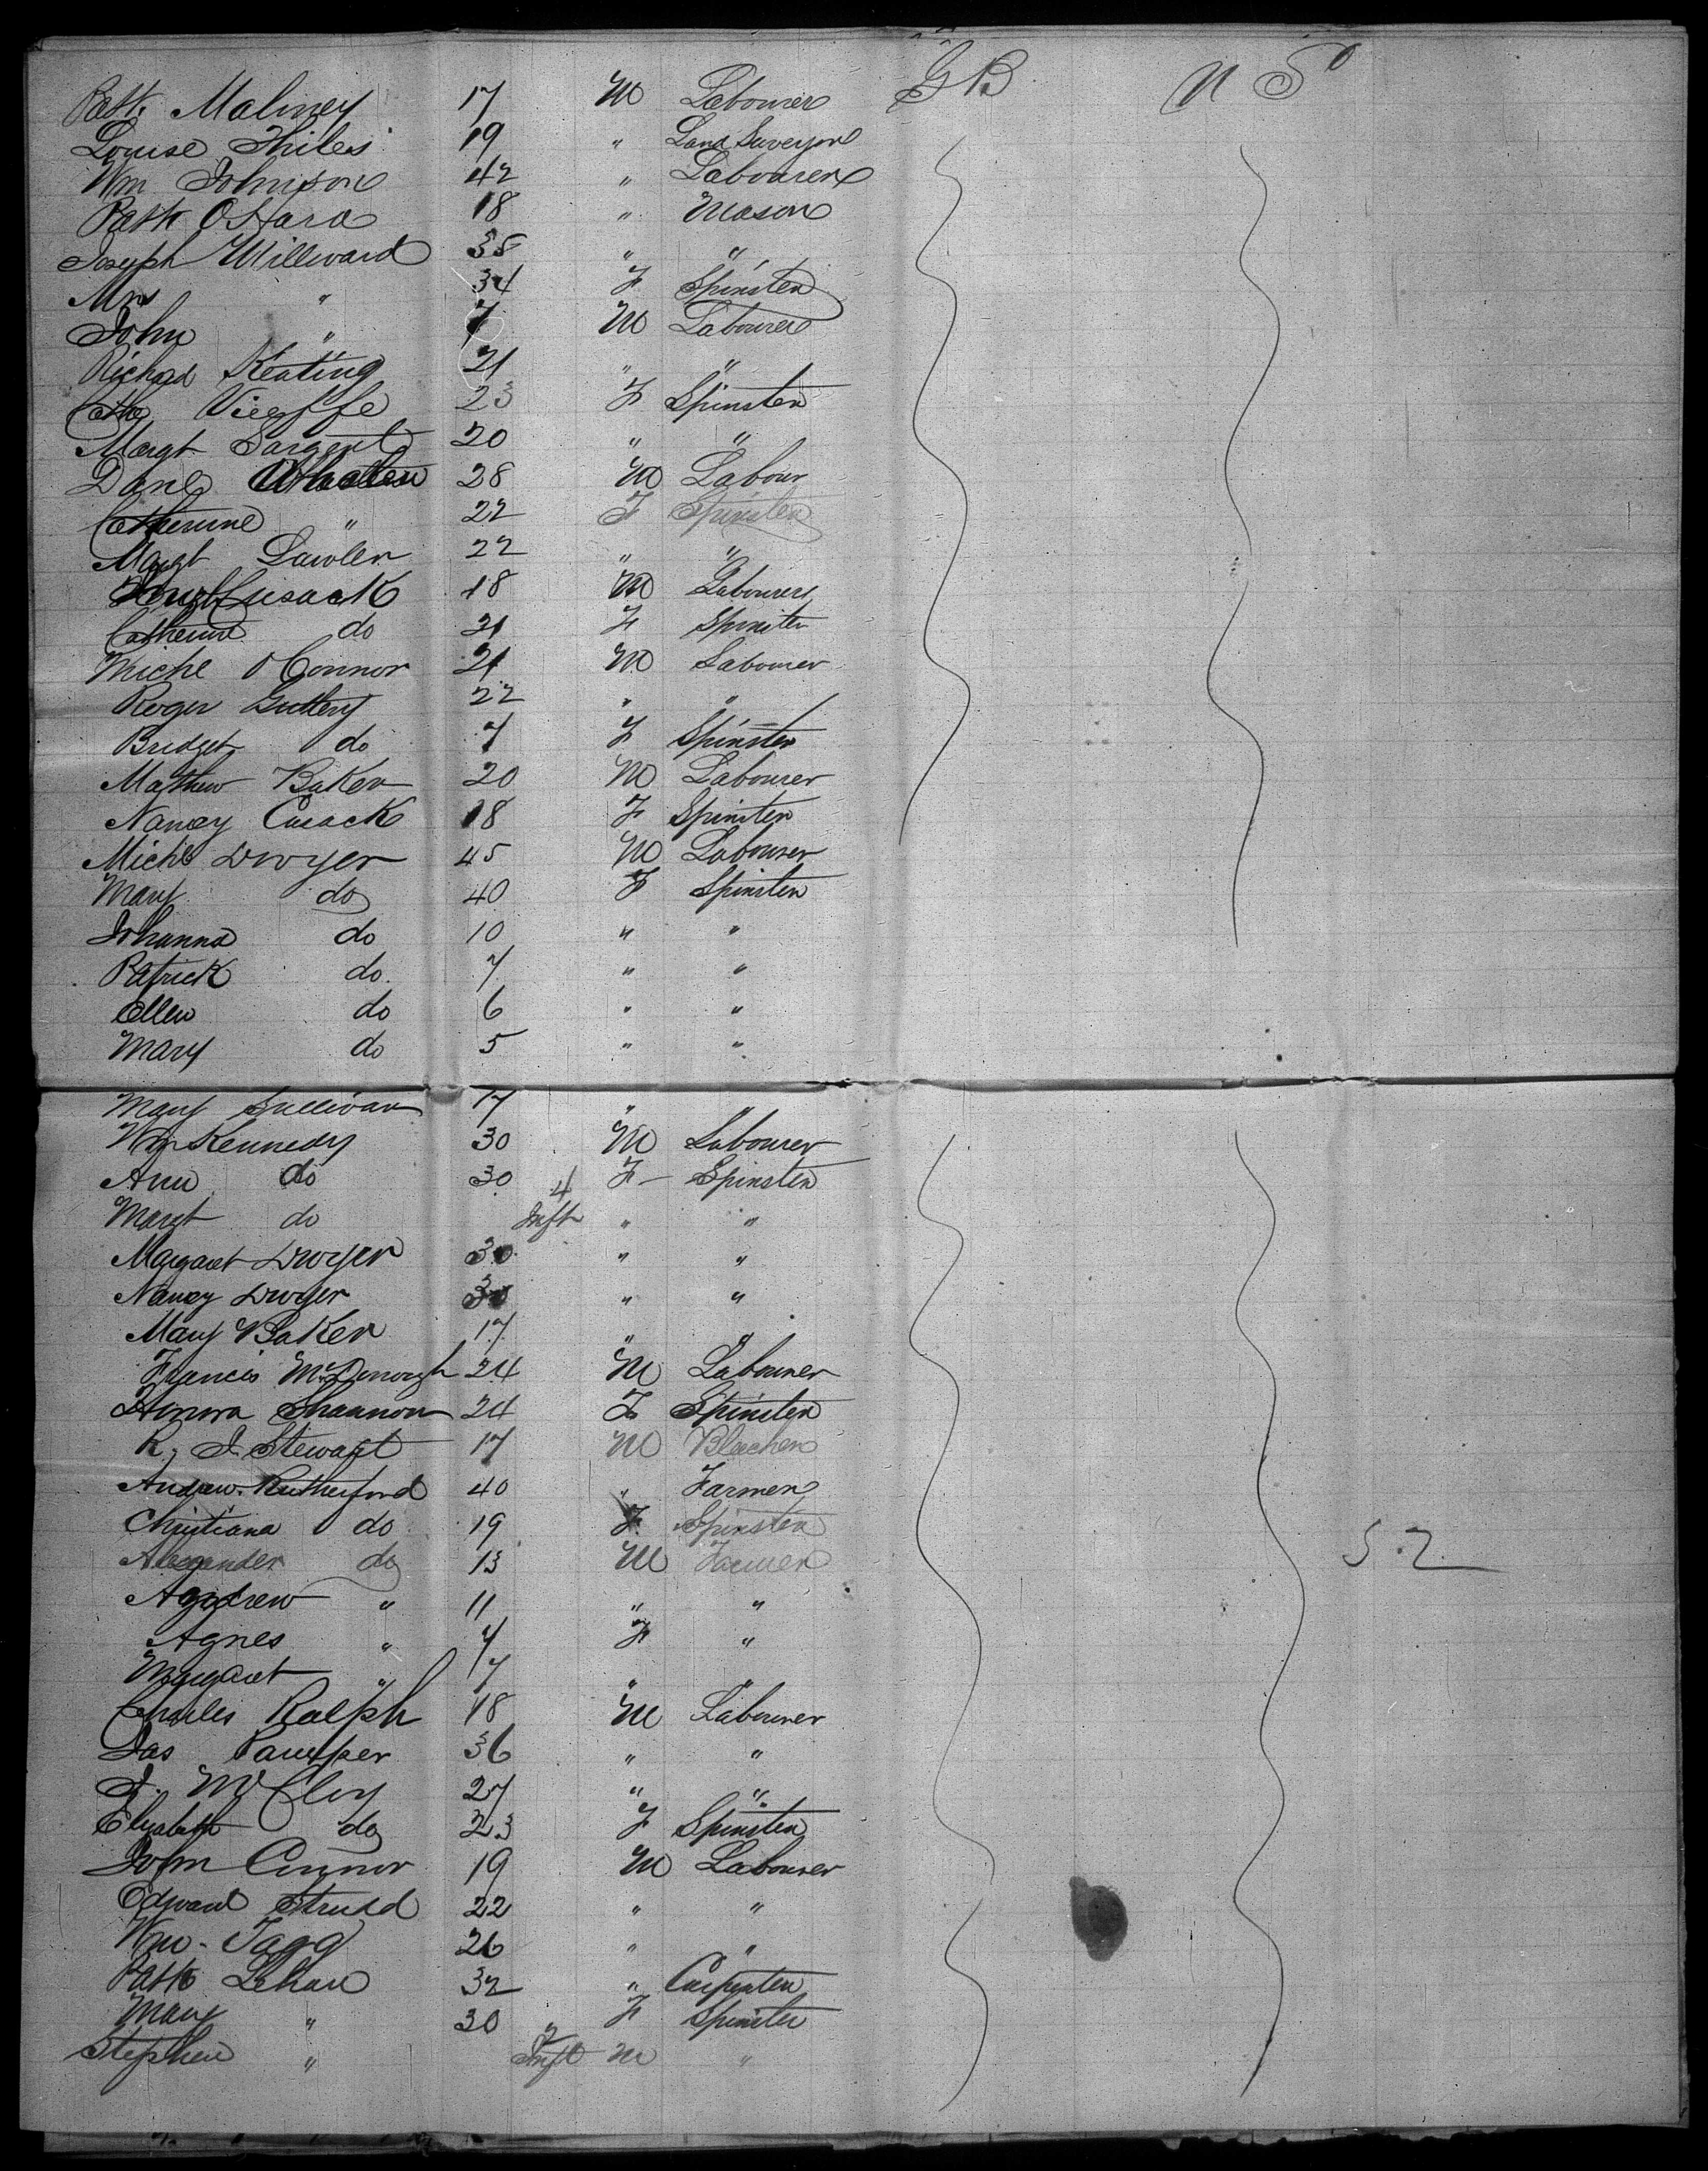 G B U S
Patk. Maliney 17 M Labourer
Louise Thiles 19 " Land Surveyor
Wm Johnson 42 " Labourer
Patk OHara 18 " Mason
Joseph Willward 35 " "
Mrs " 34 F Spinster
John " 7 M Labourer
Richard Keating 21 " "
Cath 23 F Spinster
Margt Sargent 20 " "
Danl 28 M Labour
Catherine " 22 F Spinster
Margt Lawler 22 " "
Cusack 18 M Labourer
Catherine do 21 F Spinster
Michl O Connor 21 M Labourer
Roger 22 " "
Bridget do 7 F Spinster
Mathew Baker 20 M Labourer
Nancy Cusack 18 F Spinster
Michl Dwyer 45 M Labourer
Mary do 40 F Spinster
Johanna do 10 " "
Patrick do. 7 " "
Ellen do 6 " "
Mary do 5 " "
Mary Sullivan 17 " "
Wm Kennedy 30 M Labourer
Ann do 30 F - Spinster
Margt do 4 Inft " "
Margaret Dwyer 30 " "
Nancy Dwyer 30 " "
Mary Baker 17 " "
Francis McDonough 24 M Labourer
Honora Shannon 24 F Spinster
R. J. Stewart 17 M Bleacher
Andrew Rutherford 40 " Farmer
Christiana do 19 F Spinster
Alexander do 13 M Farmer
52
Andrew " 11 " "
Agnes " 7 F "
Margaret " 7 " "
Charles Ralph 18 M Labourer
Jas 36 " "
J. McCloy 27 " "
Elizabeth do 23 F Spinster
John Connor 19 M Labourer
Edward Strudd 22 " "
Wm. Tagg 26 " "
Patk Lehan 32 " Carpenter
Mary " 30 F Spinster
Stephen " 2 Inft M "